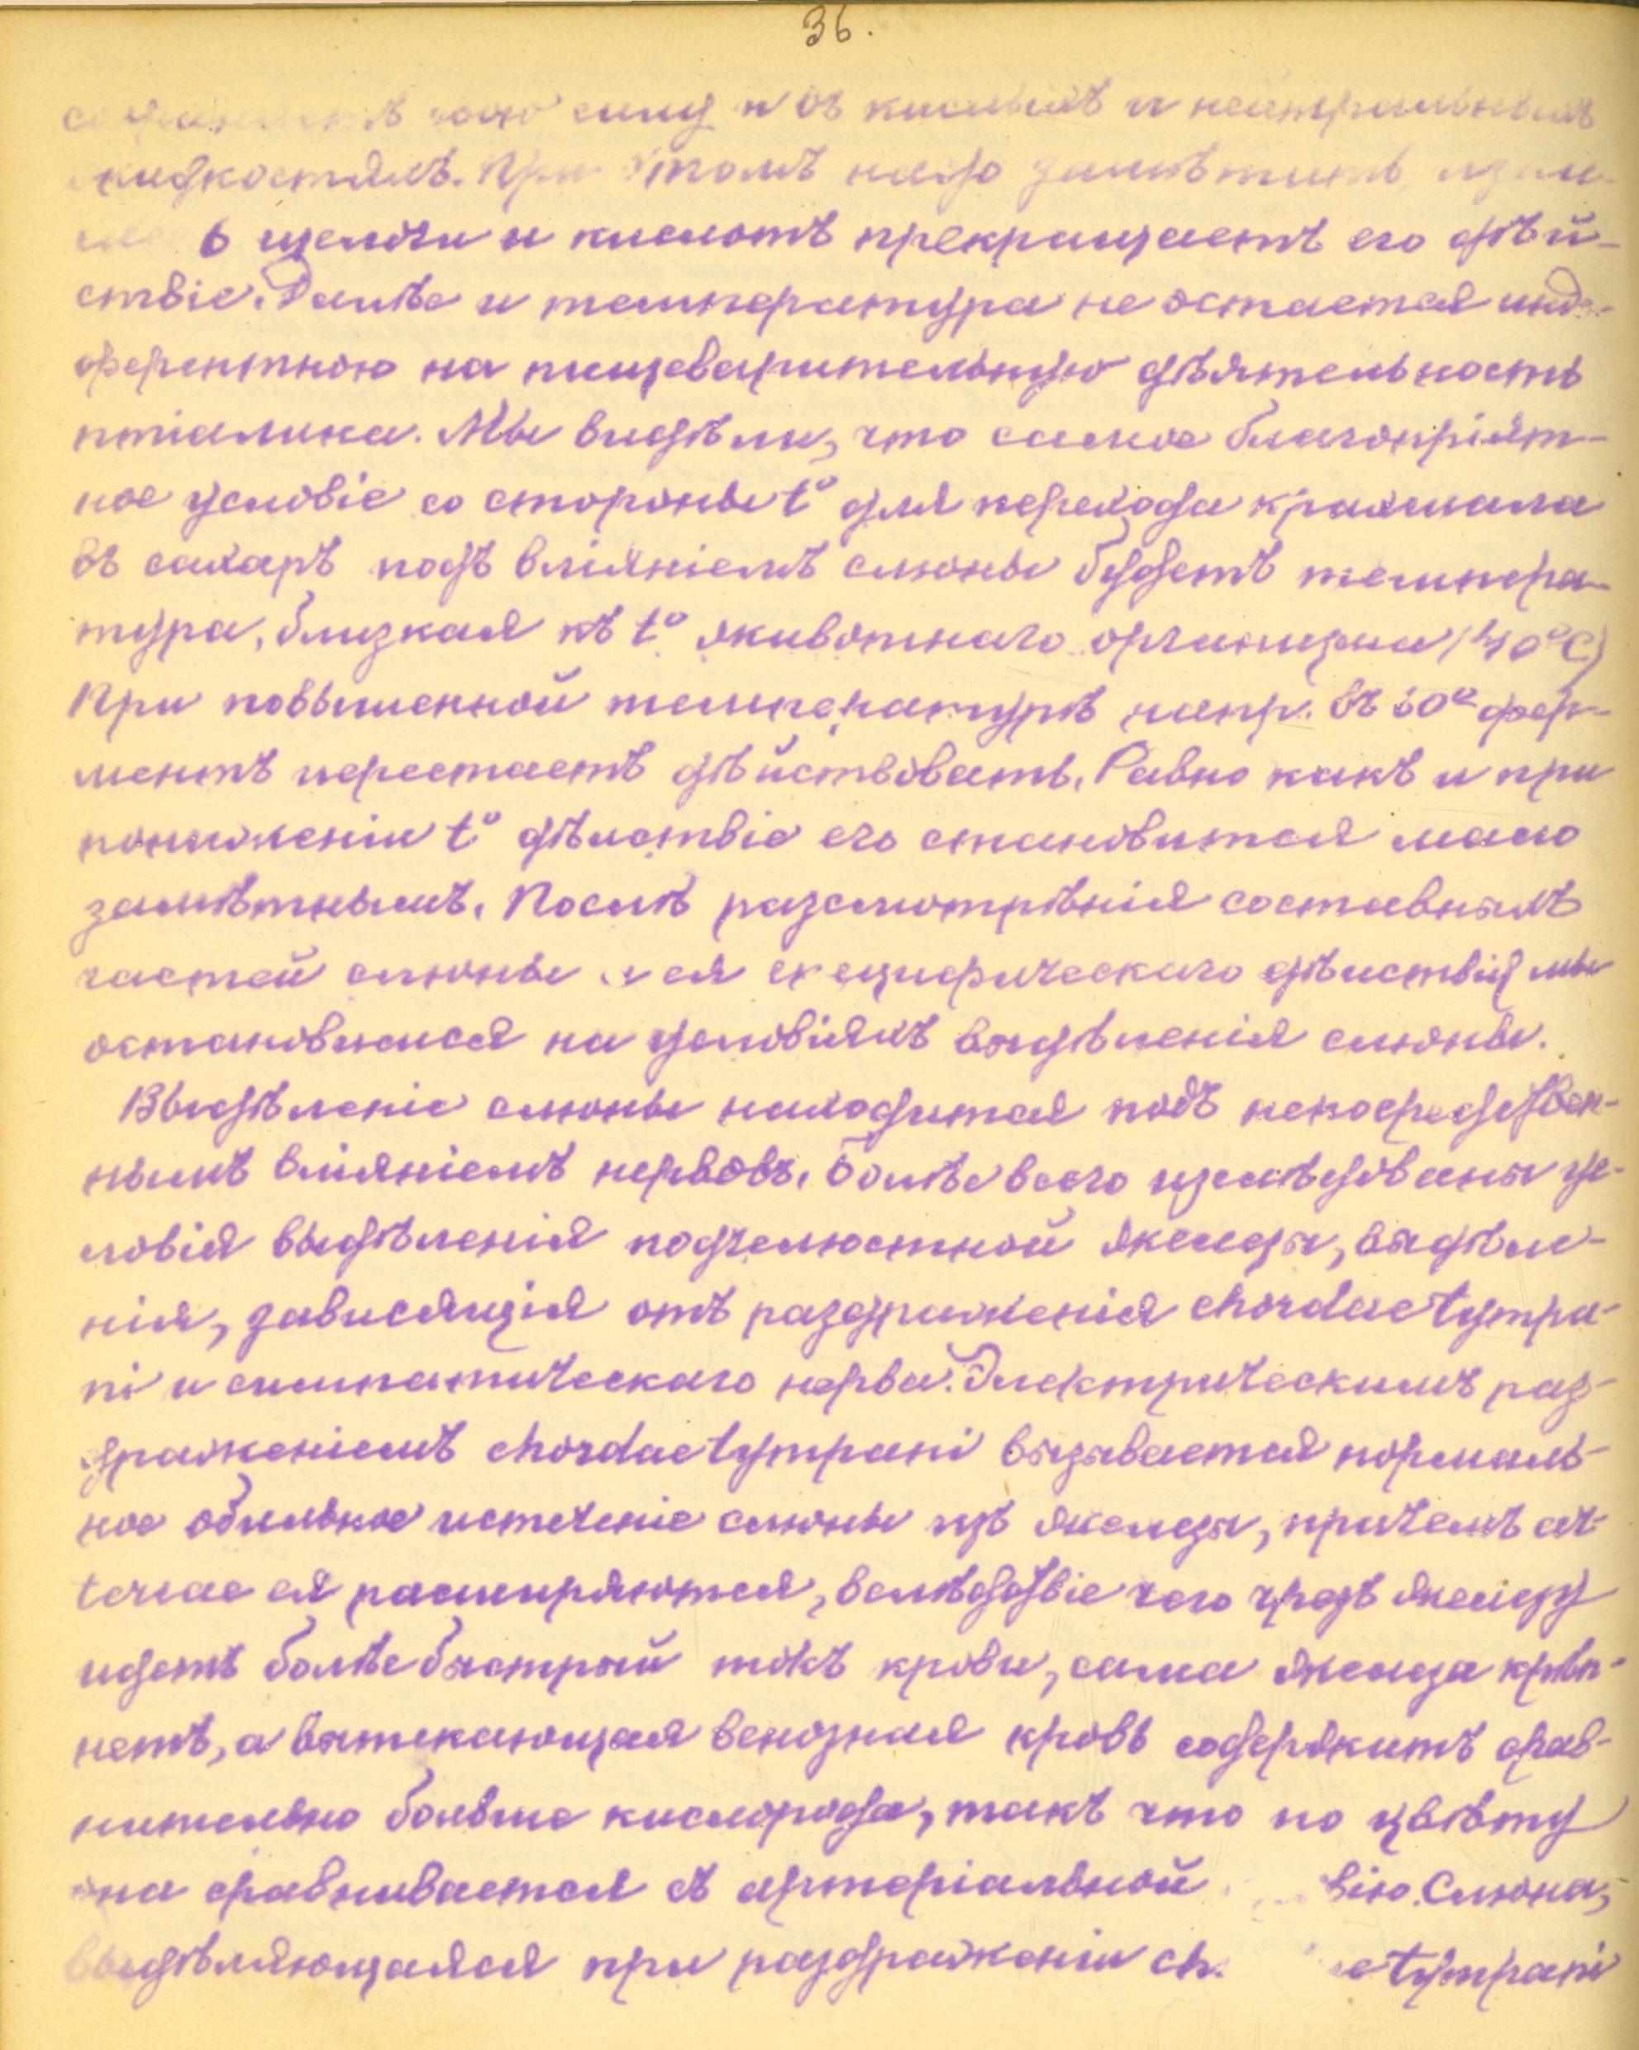 36.
силу и въ кислыхъ и нейтральныхъ
жидкостяхъ. При этомъ надо замѣтить,
щелочи и кислотѣ прекращаетъ его дѣй-
ствіе. Далѣе и температура не остается инд-
ферентною на пищеварительную дѣятельность
птіалина. Мы видѣли, что самое благопріят-
ное условіе со стороны t° для перехода крахмала
въ сахаръ подъ вліяніемъ слюны будетъ темпера-
тура, близкая къ t° животнаго организма (40°C)
При повышенной температурѣ напр. въ 60° фер-
ментъ перестаетъ дѣйствовать. Равно какъ и при
пониженіи t° дѣйствіе его становится мало
замѣтнымъ. Послѣ разсмотрѣнія составныхъ
частей слюны и ея специфическаго дѣйствія мы
остановимся на условіяхъ выдѣленія слюны.
Выдѣленіе слюны находится подъ непосредствен-
нымъ вліяніемъ нервовъ. Болѣе всего изслѣдованы ус-
ловія выдѣленія подчелюстной железы, выдѣле-
нія, зависящія отъ раздраженія chordae tympa-
ni и симпатическаго нерва. Электрическимъ раз-
драженіемъ chordae tympani вызывается нормаль-
ное обильное истеченіе слюны изъ железы, причемъ ar-
teriae ея расширяются, вслѣдствіе чего чрезъ железу
идетъ болѣе быстрый токъ крови, сама железа крѣп-
нетъ, а вытекающая венозная кровь содержитъ срав-
нительно больше кислорода, такъ что по цвѣту
она сравнивается съ артеріальной вію. Слюна,
выдѣляющаяся при раздраженіи ch. ae tympani